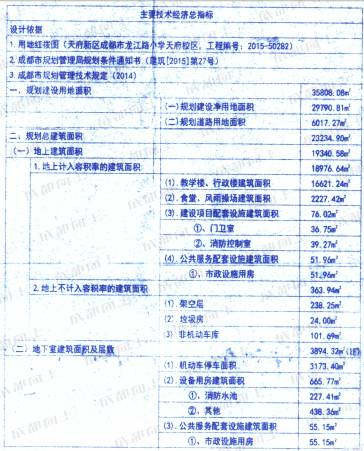 主要技术经济总指标
设计依据
1. 用地红线图(天府新区成都市龙江路小学天府校区, 工程编号: 2015-50282)
2. 成都市规划管理局规划条件通知书(建筑[2015]第27号)
3. 成都市规划管理技术规定(2014)
一、规划建设用地面积 35808.08㎡
(一)规划建设净用地面积 29790.81㎡
(二)规划道路用地面积 6017.27㎡
二、规划总建筑面积 23234.90㎡
(一)地上建筑面积 19340.58㎡
1.地上计入容积率的建筑面积 18976.64㎡
(1). 教学楼、行政楼建筑面积 16621.24㎡
(2). 食堂、风雨操场建筑面积 2227.42㎡
(3). 建设项目配套设施建筑面积 76.02㎡
①、门卫室 36.75㎡
②、消防控制室 39.27㎡
(4). 公共服务配套设施建筑面积 51.96㎡
①、市政设施用房 51.96㎡
2.地上不计入容积率的建筑面积 363.94㎡
(1) 架空层 238.25㎡
(2) 垃圾房 24.00㎡
(3) 非机动车库 101.69㎡
(二)地下室建筑面积及层数 3894.32㎡(1层)
(1). 机动车停车面积 3173.40㎡
(2). 设备用房建筑面积 665.77㎡
①、消防水池 227.41㎡
②、其他 438.36㎡
(3). 公共服务配套设施建筑面积 55.15㎡
①、市政设施用房 55.15㎡